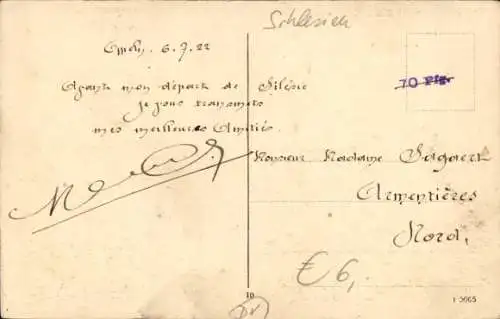 Schlesien
Oppeln. 6.7.22
10 Pfg
Avant mon départ de Silésie
je vous transmets
mes meilleures Amitiés.
Monsieur Madame Sagaert
Armentières
Nord,
€ 6,
10
F 5665